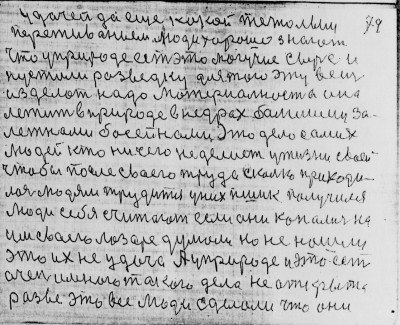 удачей да еще какой тежолым 79
переживанием люди хорошо знают
что у природе есть это могучие сырье и
пустили разведку для того эту вещ
изделот надо материалность она
лежит в природе в недрах балшими за-
лежнами босейнами это дело самих
людей кто ничего неделает у жизни своей
чтобы после своего труда сколь приходи-
лся людям трудится у них пшик получился
люди себя считают если они копались на
им сваего лозаре думали но не нашли
это их не удача А у природе и это есть
очен много такого дела не открыта
разве это все люди сделали что они